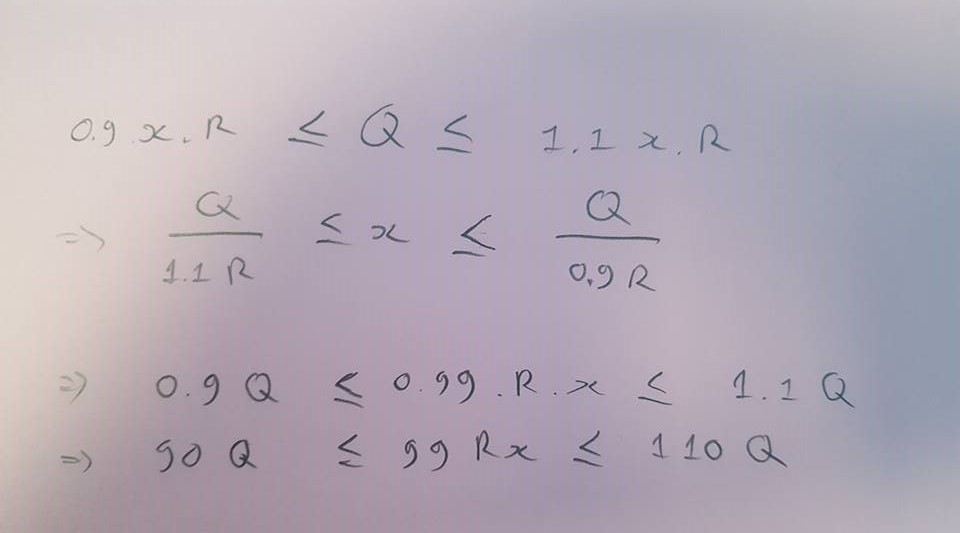 0.9 x. R ≤ Q ≤ 1.1 x. R
=> Q / 1.1 R ≤ x ≤ Q / 0.9 R
=> 0.9 Q ≤ 0.99 . R . x ≤ 1.1 Q
=> 90 Q ≤ 99 Rx ≤ 110 Q